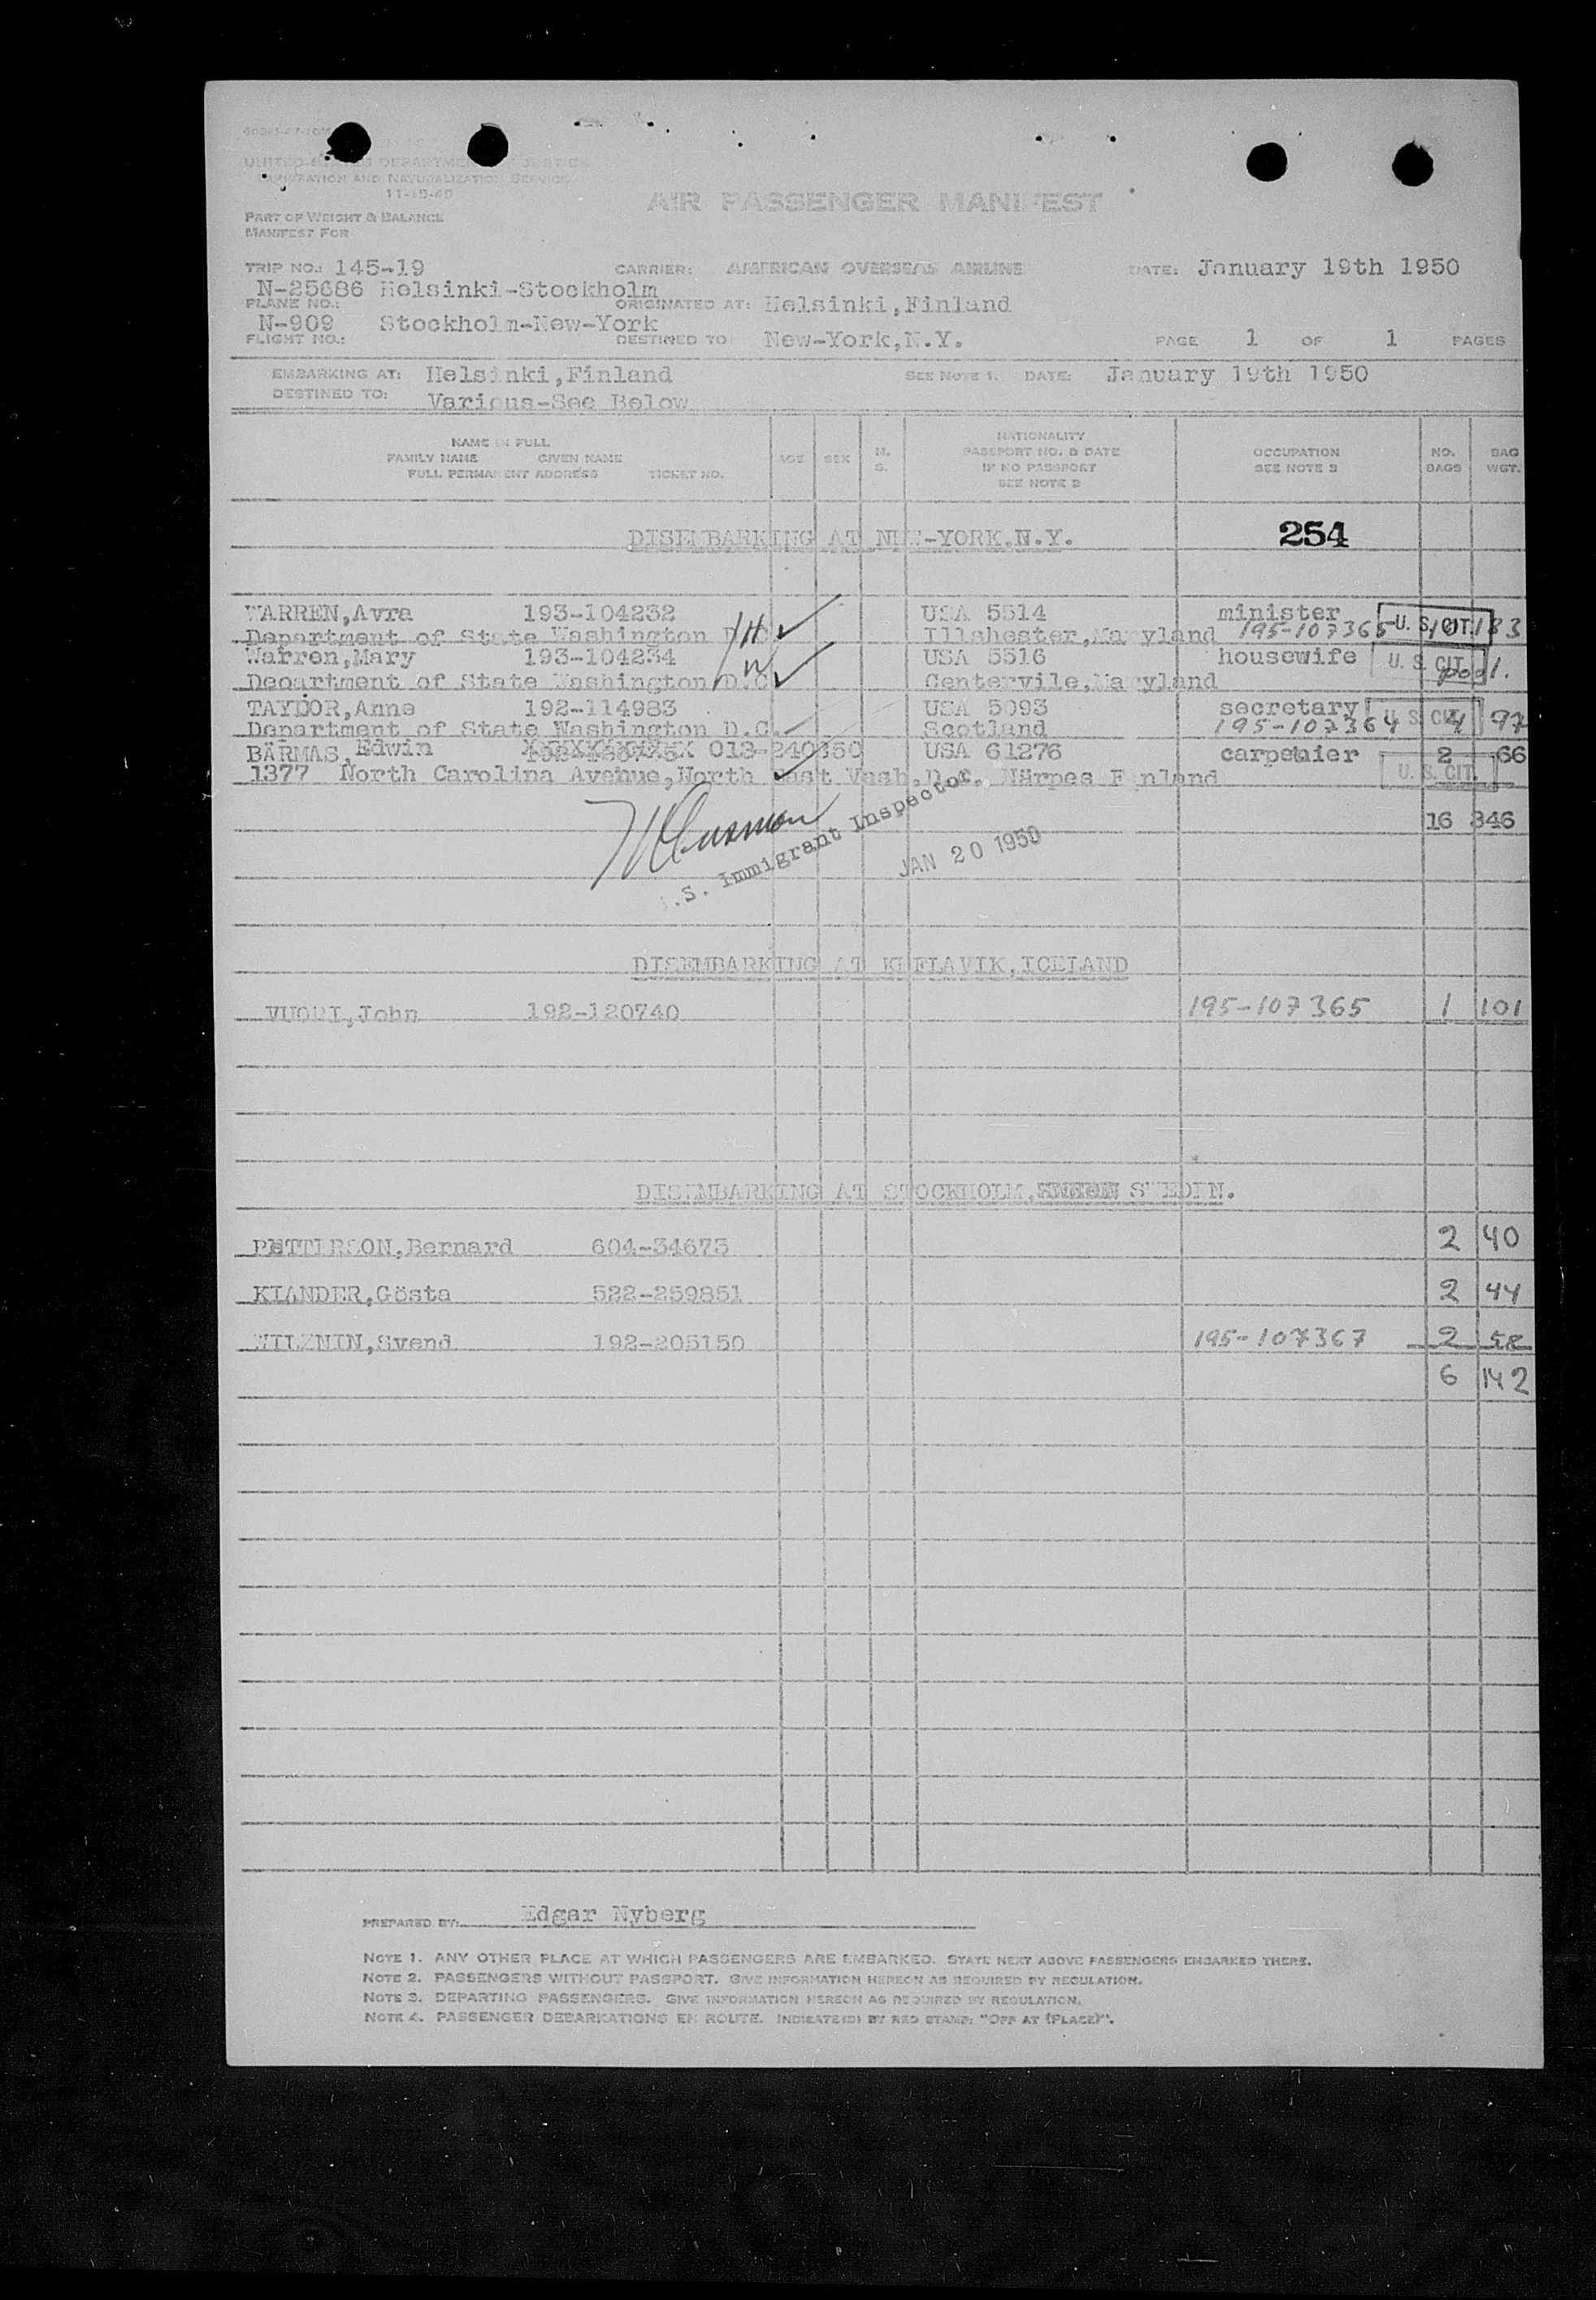 UNITED STATES DEPARTMENT OF JUSTICE
IMMIGRATION AND NATURALIZATION SERVICE
11-15-46
AIR PASSENGER MANIFEST
PART OF WEIGHT & BALANCE
MANIFEST FOR
TRIP NO.: 145-19 CARRIER: AMERICAN OVERSEAS AIRLINE DATE: January 19th 1950
N-25686 Helsinki-Stockholm
PLANE NO.: ORIGINATED AT: Helsinki,Finland
N-909 Stockholm-New-York
FLIGHT NO.: DESTINED TO: New-York,N.Y. PAGE 1 OF 1 PAGES
EMBARKING AT: Helsinki,Finland SEE NOTE 1. DATE: January 19th 1950
DESTINED TO: Various-See Below
NAME IN FULL
FAMILY NAME GIVEN NAME
FULL PERMANENT ADDRESS TICKET NO.
AGE SEX M. S.
NATIONALITY
PASSPORT NO. & DATE
IF NO PASSPORT
SEE NOTE 2
OCCUPATION
SEE NOTE 3
NO. BAGS
BAG WGT.
DISEMBARKING AT NEW-YORK,N.Y. 254
WARREN,Avra 193-104232 USA 5514 minister
Department of State Washington D.C. H Illshester,Maryland 195-107365 U. S. CIT. 10 183
Warren,Mary 193-104234 USA 5516 housewife U. S. CIT.
Department of State Washington D.C. W Centervile,Maryland pool.
TAYLOR,Anne 192-114983 USA 5093 secretary
Department of State Washington D.C. Scotland 195-107364 U. S. CIT. 4 97
BÄRMAS,Edwin 013-240350 USA 61276 carpenier 2 66
1377 North Carolina Avenue,North East Wash.D.C. Närpes Finland U. S. CIT.
16 346
U.S. Immigrant Inspector
JAN 20 1950
DISEMBARKING AT KEFLAVIK,ICELAND
VUORI,John 192-120740 195-107365 1 101
DISEMBARKING AT STOCKHOLM, SWEDEN.
PETTERSON,Bernard 604-34673 2 40
KIANDER,Gösta 522-259851 2 44
WILZNIN,Svend 192-205150 195-107367 2 58
6 142
PREPARED BY: Edgar Nyberg
NOTE 1. ANY OTHER PLACE AT WHICH PASSENGERS ARE EMBARKED. STATE NEXT ABOVE PASSENGERS EMBARKED THERE.
NOTE 2. PASSENGERS WITHOUT PASSPORT. GIVE INFORMATION HEREON AS REQUIRED BY REGULATION.
NOTE 3. DEPARTING PASSENGERS. GIVE INFORMATION HEREON AS REQUIRED BY REGULATION.
NOTE 4. PASSENGER DEBARKATIONS EN ROUTE. INDICATE(D) BY RED STAMP: "OFF AT (PLACE)".